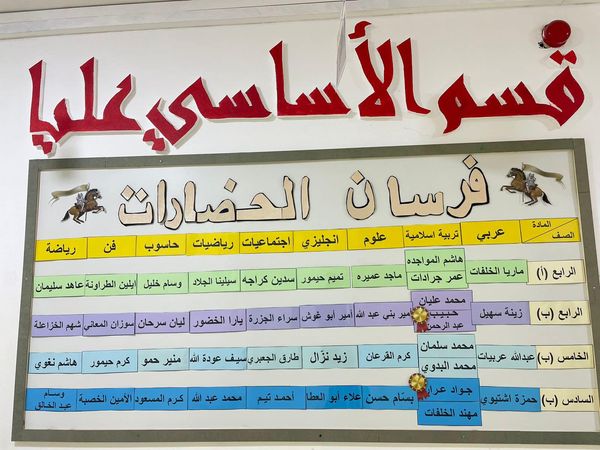 قسم الأساسي عليا
فرسان الحضارات
المادة الصف عربي تربية اسلامية علوم انجليزي اجتماعيات رياضيات حاسوب فن رياضة
الرابع (أ) ماريا الخلفات هاشم المواجده عمر جرادات ماجد عميره تميم حيمور سدين كراجه سيلينا الجلاد وسام خليل ايلين الطراونة عاهد سليمان
الرابع (ب) زينة سهيل محمد عليان حبيب عبد الرحمن أمير بني عبد الله أمير أبو غوش سراء الجزرة يارا الخضور ليان سرحان سوزان المعاني شهم الخزاعلة
الخامس (ب) عبدالله عربيات محمد سلمان محمد البدوي كرم القرعان زيد نزال طارق الجعبري سيف عودة الله منير حمو كرم حيمور هاشم نغوي
السادس (ب) حمزة اشتيوي جواد عرار مهند الخلفات بسّام حسن علاء أبو العطا أحمد تيم محمد عبد الله كرم المسعود الأمين الخصبة وسام عبد الخالق